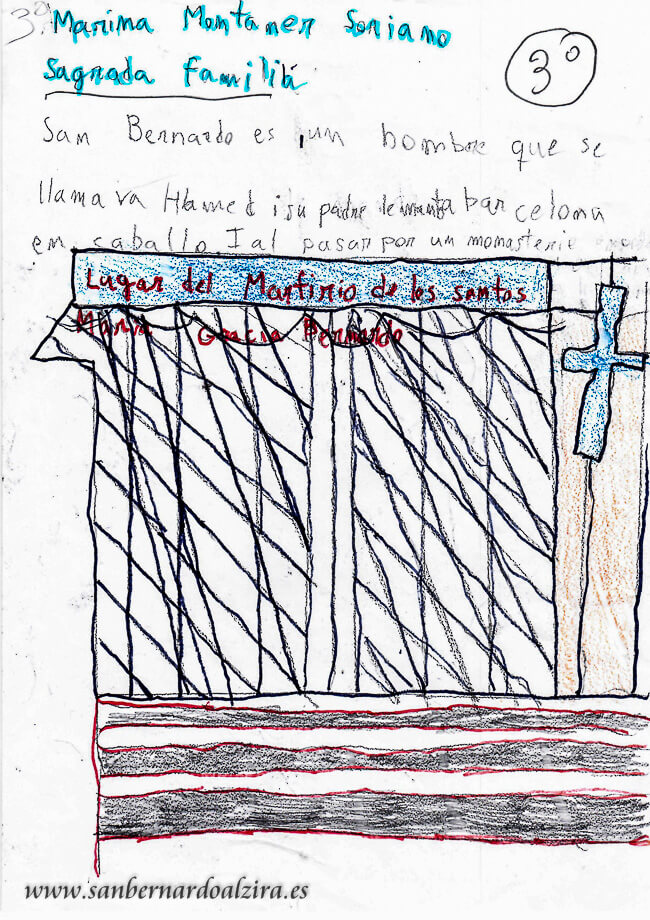 3º Marina Montaner Soriano
Sagrada Familiá
3º
San Bernardo es un hombre que se
llamava Hamet i su padre le manda bar celona
en caballo. I al pasar por un monasterie
Lugar del Martirio de los santos
María Gracia Bernardo
www.sanbernardoalzira.es